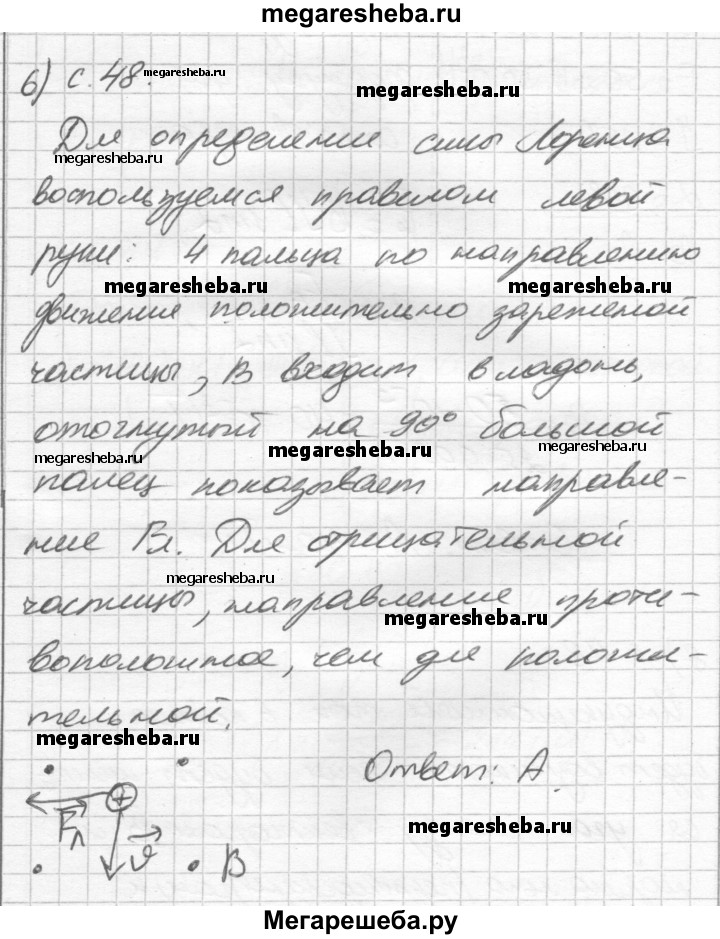 megaresheba.ru
6) с. 48.
megaresheba.ru
megaresheba.ru
Для определение силы Лоренца
megaresheba.ru
воспользуемся правилом левой
руки: 4 пальца по направлению
megaresheba.ru megaresheba.ru
движения положительно зареженой
частицы, В входит в ладонь,
отогнутый на 90° большой
megaresheba.ru megaresheba.ru megaresheba.ru
палец показывает направле-
ние Fл. Для отрицательной
megaresheba.ru
частицы, направление проти-
megaresheba.ru
воположное, чем для положи-
тельной.
megaresheba.ru
Ответ: А.
+
Fл
v
В
megaresheba.ru
Мегарешеба.ру